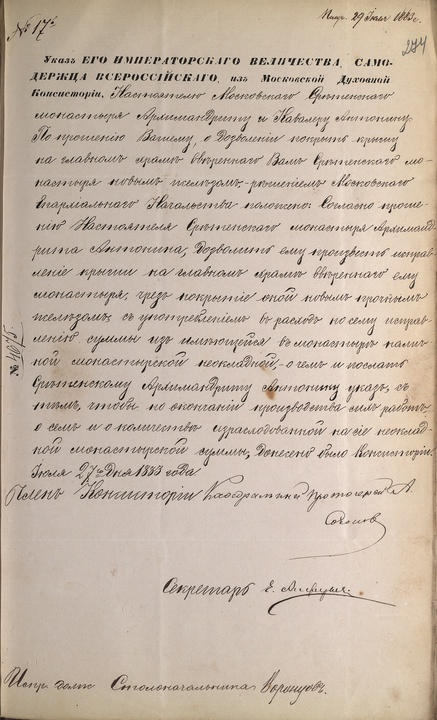 № 175
29 Іюля 1883 г.
274
Указъ ЕГО ИМПЕРАТОРСКАГО ВЕЛИЧЕСТВА, САМО-
ДЕРЖЦА ВСЕРОССІЙСКАГО, изъ Московской Духовной
Консисторіи, Настоятелю Московскаго Срѣтенскаго
монастыря Архимандриту и Кавалеру Антонину.
По прошенію Вашему, о дозволеніи покрыть крышу
на главномъ храмѣ ввѣреннаго Вамъ Срѣтенскаго мо-
настыря новымъ желѣзомъ,—рѣшеніемъ Московскаго
Епархіальнаго Начальства положено: Согласно проше-
нію Настоятеля Срѣтенскаго монастыря Архиманд-
рита Антонина, дозволить ему произвесть исправ-
леніе крыши на главномъ храмѣ ввѣреннаго ему
монастыря, чрезъ покрытіе оной новымъ прочнымъ
желѣзомъ, съ употребленіемъ въ расходъ по сему исправ-
ленію суммы изъ имѣющейся въ монастырѣ налич-
ной монастырской неокладной,—о чемъ и послать
Срѣтенскому Архимандриту Антонину указъ, съ
тѣмъ, чтобы по окончаніи производства симъ работъ,
о семъ и о количествѣ израсходованной на сіе неоклад-
ной монастырской суммы, донесено было Консисторіи.
Іюля 27 дня 1883 года
№ 4075
Членъ Консисторіи Каѳедральный Протоіерей А.
Соколовъ
Секретарь Е.
Испр. должн. Столоначальника Воронцовъ.